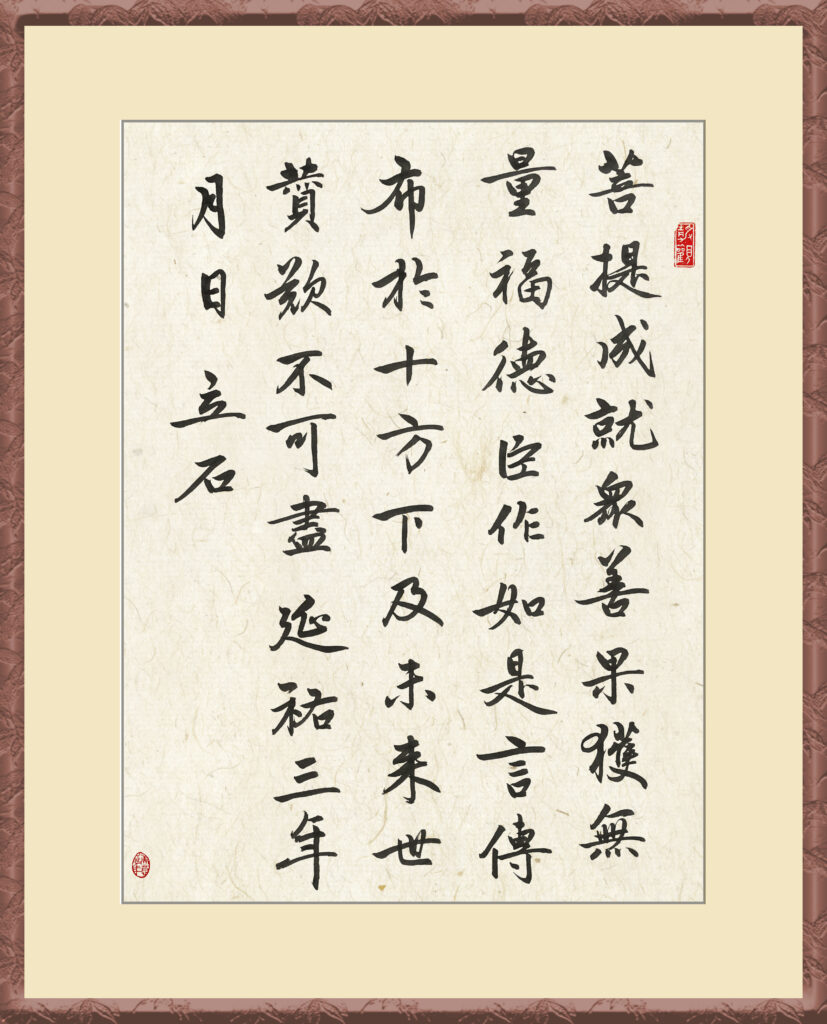 菩提成就眾善果獲無
量福德臣作如是言傳
布於十方下及未来世
賛歎不可盡延祐三年
月日立石